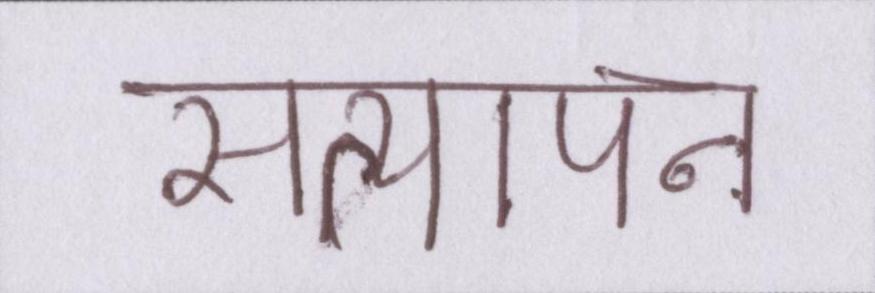 सत्यापन